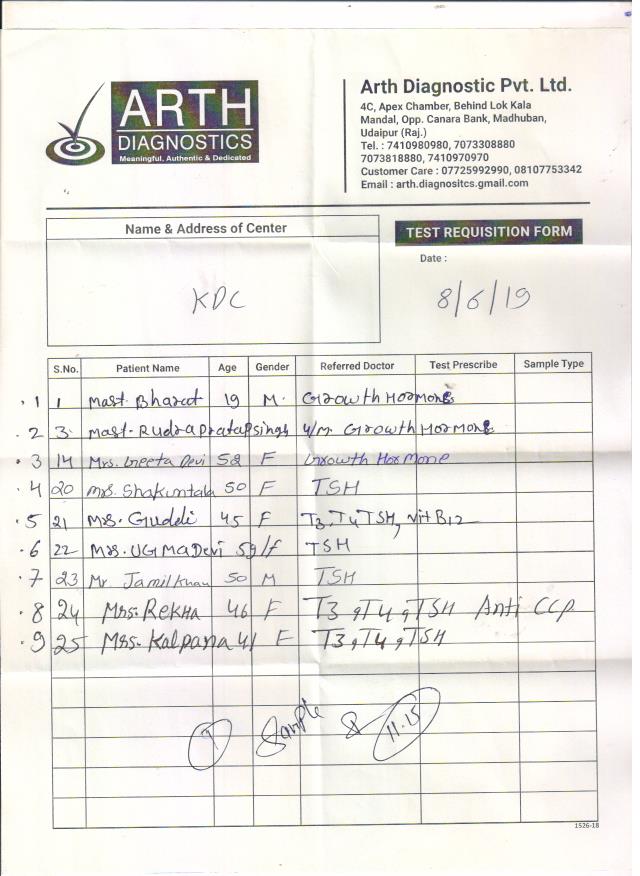 ARTH
DIAGNOSTICS
Meaningful, Authentic & Dedicated
Arth Diagnostic Pvt. Ltd.
4C, Apex Chamber, Behind Lok Kala
Mandal, Opp. Canara Bank, Madhuban,
Udaipur (Raj.)
Tel. : 7410980980, 7073308880
7073818880, 7410970970
Customer Care : 07725992990, 08107753342
Email : arth.diagnositcs.gmail.com
Name & Address of Center
KDC
TEST REQUISITION FORM
Date :
8/6/19
S.No. Patient Name Age Gender Referred Doctor Test Prescribe Sample Type
.1 1 Mast. Bharat 19 M. Growth Hormone
.2 3 Mast. Rudra Pratapsingh 4/M. Growth Hormone
.3 14 Mrs. Geeta Devi 52 F Growth Hormone
.4 20 Mrs. Shakuntala 50 F TSH
.5 21 Mrs. Guddi 45 F T3, T4 TSH, Vit B12
.6 22 Mrs. UGMA Devi 59/f TSH
.7 23 Mr Jamil Khan 50 M TSH
.8 24 Mrs. Rekha 46 F T3, T4, TSH Anti CCP
.9 25 Mrs. Kalpana 41 F T3, T4, TSH
Sample 11.15
1526-18